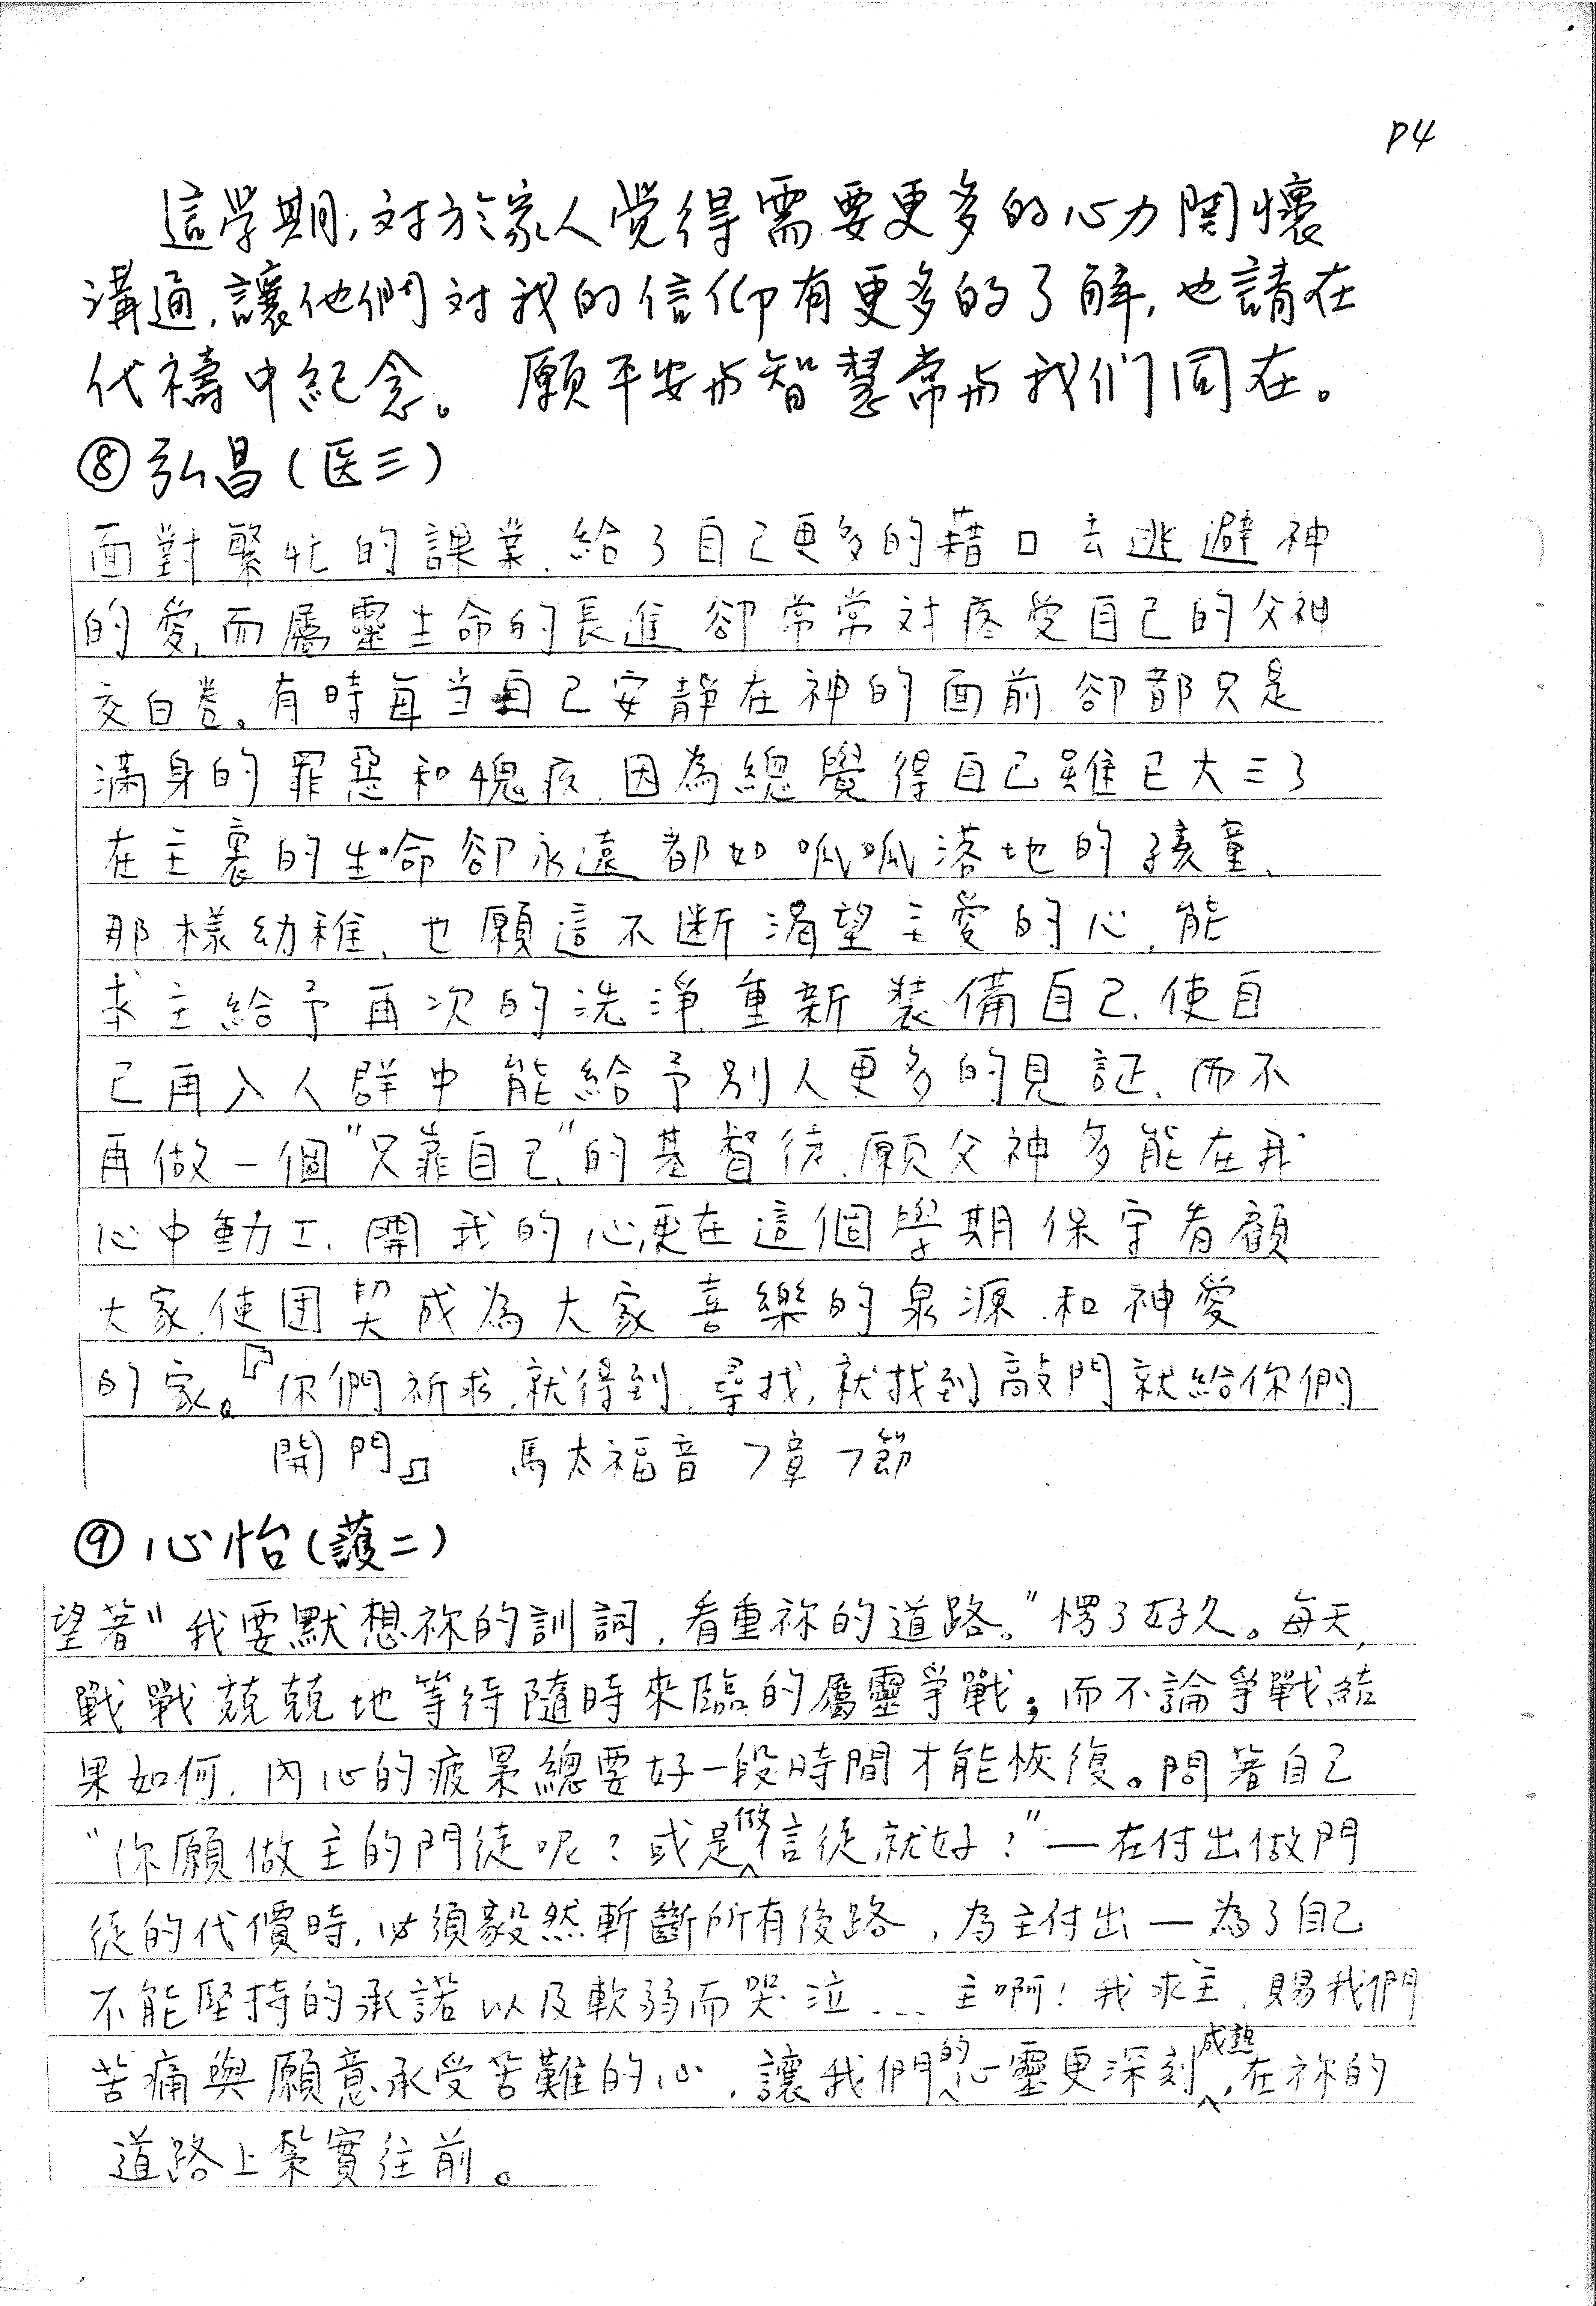 P4
這学期,对於家人覚得需要更多的心力関懷
溝通,讓他們对我的信仰有更多的了解,也請在
代禱中紀念。願平安与智慧常与我们同在。
⑧弘昌(医三)
面對繁忙的課業,給了自己更多的藉口去逃避神
的愛,而屬靈生命的長進卻常常対疼愛自己的父神
交白卷。有時每当自己安靜在神的面前卻都只是
滿身的罪惡和愧疚,因為總覺得自己雖已大三了
在主裏的生命卻永遠都如呱呱落地的孩童、
那樣幼稚,也願這不断渴望主愛的心,能
求主給予再次的洗淨,重新裝備自己,使自
己再入人群中能給予別人更多的見証,而不
再做一個"只靠自己"的基督徒,願父神多能在我
心中動工,開我的心,更在這個學期保守看顧
大家,使团契成為大家喜樂的泉源,和神愛
的家。『你們祈求,就得到,尋找,就找到敲門就給你們
開門』 馬太福音7章7節
⑨心怡(護二)
望著"我要默想祢的訓詞,看重祢的道路。"愣了好久。每天,
戰戰兢兢地等待隨時來臨的屬靈爭戰;而不論爭戰結
果如何,內心的疲累總要好一段時間才能恢復。問著自己
"你願做主的門徒呢?或是做信徒就好?"—在付出做門
徒的代價時,必須毅然斬斷所有後路,為主付出—為了自己
不能堅持的承諾以及軟弱而哭泣...主啊!我求主,賜我們
苦痛與願意承受苦難的心,讓我們的心靈更深刻成熟,在祢的
道路上紮實往前。